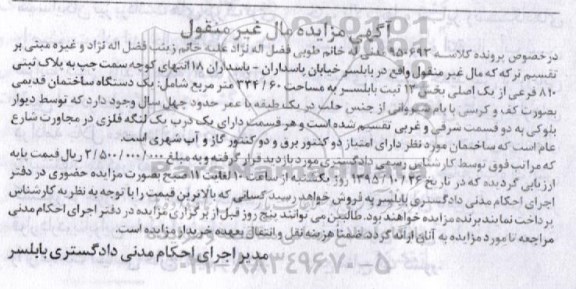 آگهی مزایده مال غیر منقول
در خصوص پرونده کلاسه ۹۵۰۶۹۳ خانم طوبی فضل اله نژاد علیه خانم زینب فضل اله نژاد و غیره مبنی بر
تقسیم ترکه که مال غیر منقول واقع در بابلسر خیابان پاسداران - پاسداران ۱۸ انتهای کوچه سمت چپ به پلاک ثبتی
۸۱۰ فرعی از یک اصلی بخش ۱۳ ثبت بابلسر به مساحت ۳۳۴/۶۰ متر مربع شامل: یک دستگاه ساختمان قدیمی
بصورت کف و کرسی با بام شیروانی از جنس حلب در یک طبقه با عمر حدود چهل سال وجود دارد که توسط دیوار
بلوکی به دو قسمت شرقی و غربی تقسیم شده است و هر قسمت دارای یک درب یک لنگه فلزی در مجاورت شارع
عام است که ساختمان مورد نظر دارای امتیاز دو کنتور برق و دو کنتور گاز و آب شهری است.
که مراتب فوق توسط کارشناس رسمی دادگستری مورد بازدید قرار گرفته و به مبلغ ۲/۵۰۰/۰۰۰/۰۰۰ ریال قیمت پایه
ارزیابی گردیده که در تاریخ ۱۳۹۵/۱۰/۲۶ روز یکشنبه از ساعت ۱۰ لغایت ۱۱ صبح بصورت مزایده حضوری در دفتر
اجرای احکام مدنی دادگستری بابلسر به فروش خواهد رسید کسانی که بالاترین قیمت را با توجه به نظریه کارشناس
پرداخت نمایند برنده مزایده خواهند بود. طالبین می توانند پنج روز قبل از برگزاری مزایده در دفتر اجرای احکام مدنی
مراجعه تا مورد مزایده به آنان ارائه گردد. ضمناً هزینه نقل و انتقال بعهده خریدار مزایده است.
مدیر اجرای احکام مدنی دادگستری بابلسر